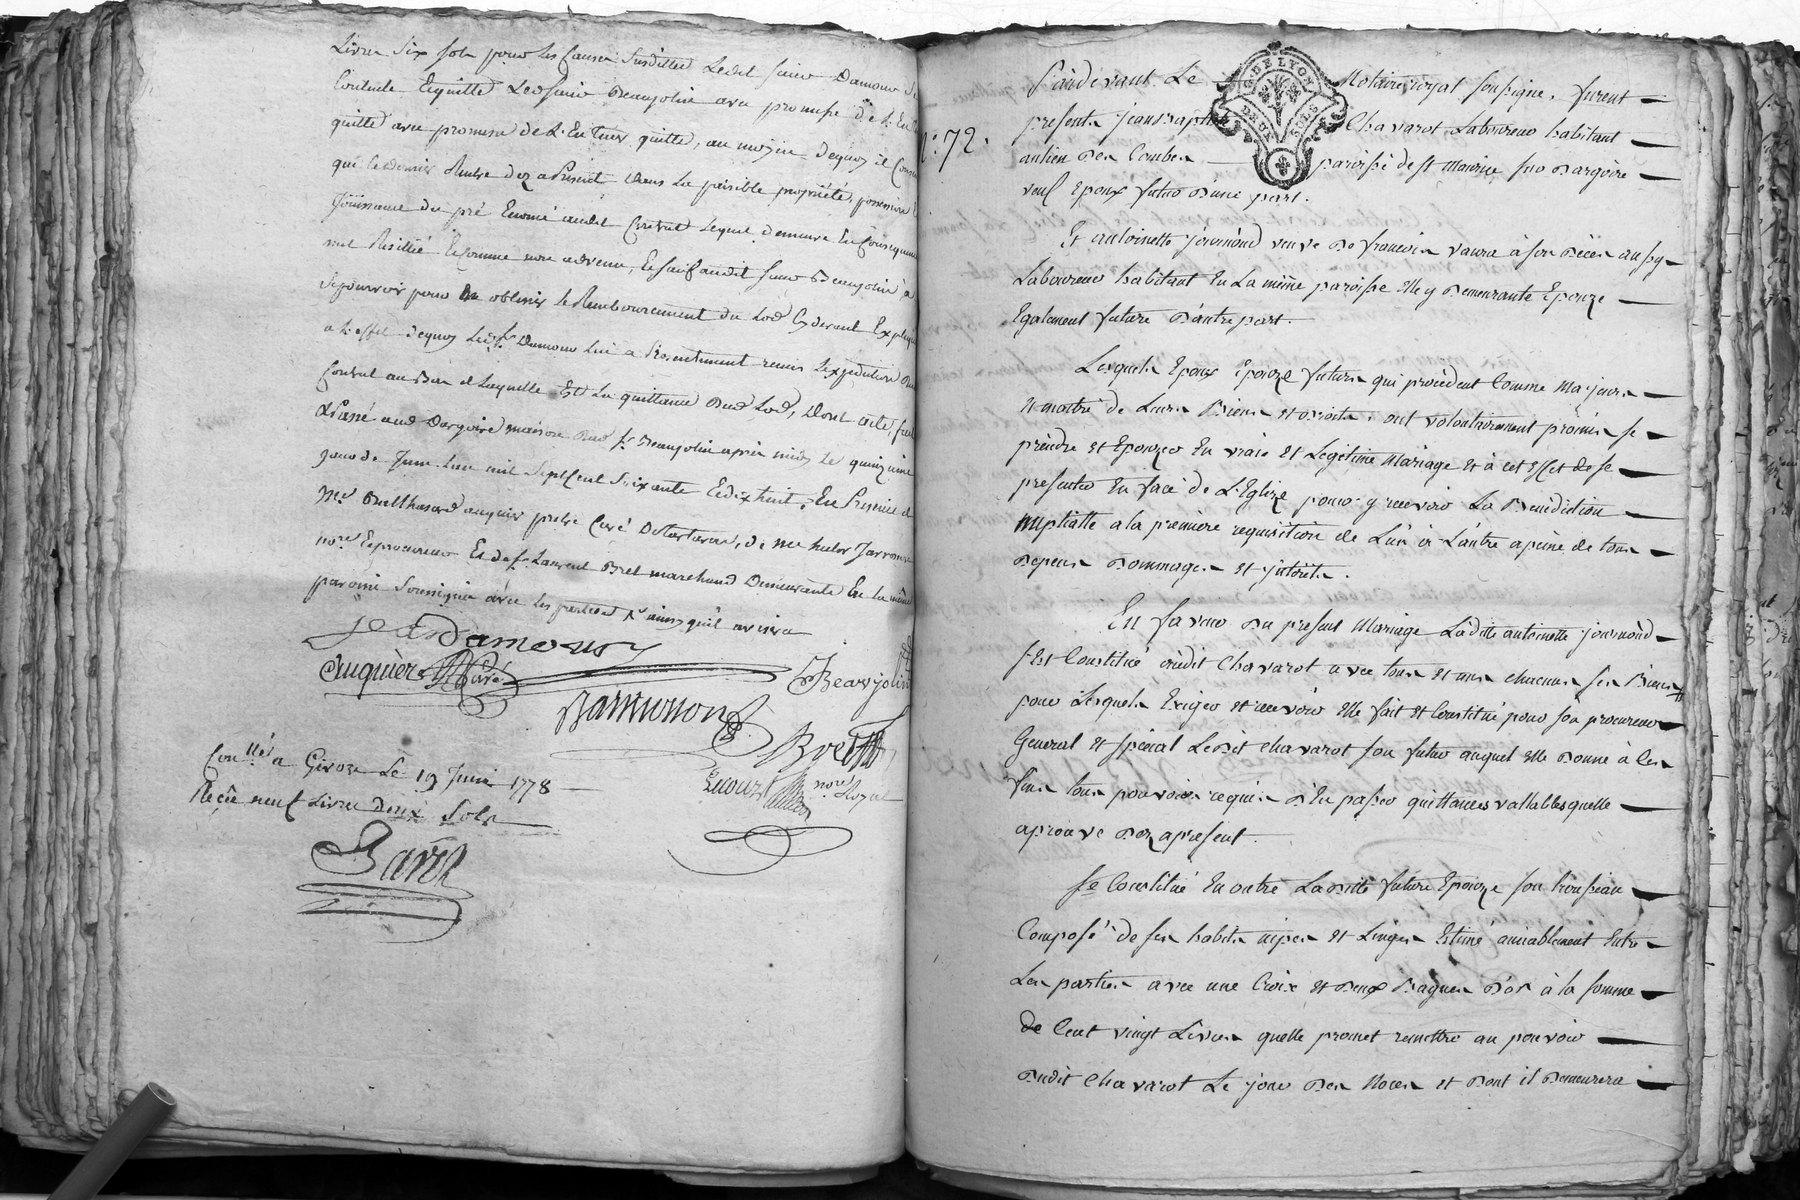 Livres six sols pour les causes susdittes Ledit sieur Damour
Contente Et quitte Led sieur Beaujolin avec promesse de l'En
quitte avec promesse de l'En tenir quitte, au moyen de quoy il
qui le dernier Rentre dez apresent dans la paisible propriété, possession
Jouissance du pré Enoncé audit Contrat Lequel demeure En Consequence
nul Resillié Et comme non advenu, Et sauf audit sieur Beaujolin a
se pourvoir pour obtenir le Remboursement du Lod Cy devant Expliqué
a l'effet de quoy Led sr Damour lui a presentement remis L'expedition du
Contrat au Bas de laquelle Est La quittance dud Lod, Dont acte, fait
Et Passé aud Dargoire maison dud sr Beaujolin après midy Le quinzieme
jour de Juin L'an mil Sept Cent Soixante Et dix huit, En Presence de
Mre Balthazard auquier pretre Curé de Tartaras, de Me
nore Et procureur Et de sr Laurent Bret marchand Demeurants En la même
paroisse Soussignés avec Les parties
Damour
Auquier Curé
Beaujolin
Bret
Conllé a Givors Le 19 Juin 1778
Reçu neuf Livres Deux Sols
nore Royal
G. DE LYON
DEUX SOLS
Pardevant Le Notaire royal soussigné, furent
N°. 72.
presents jean Baptiste Chavarot Laboureur habitant
au lieu des Combes paroisse de st Maurice sur Dargoire
veuf Epoux futur d'une part.
Et antoinette journoud veuve de francois vaura à son décès aussy
Laboureur habitant En La même paroisse Elle y demeurante Epouze
Egalement future d'autre part.
Lesquels Epoux Epouze futurs qui procedent Comme Majeurs
et maitre de Leurs Biens et droits, ont volontairement promis se
prendre et Epouzer En vraie et Legitime Mariage et à cet Effet de se
presenter En face de L'Eglize pour y recevoir La Benediction
nuptialle a la première requisition de L'un ou L'autre a peine de tous
depens dommages et jnterets.
En faveur du present Mariage Laditte antoinette journoud
s'Est Constitué audit Chavarot avec tous et uns chacuns ses Biens
pour Lesquels Exiger et recevoir Elle fait et Constitué pour son procureur
General et special Ledit Chavarot son futur auquel Elle donne à les
fins tous pouvoirs requis d'En passer quittances vallables quelle
aprouve dez apresent.
se Constitué En outre Laditte future Epouze son trousseau
Composé de ses habits nipes et Linges Estimé amiablement Entre
Les parties avec une Croix et deux Bagues d'or à la somme
de Cent vingt Livres quelle promet remettre au pouvoir
dudit Chavarot Le jour des Noces et dont il Demeurera